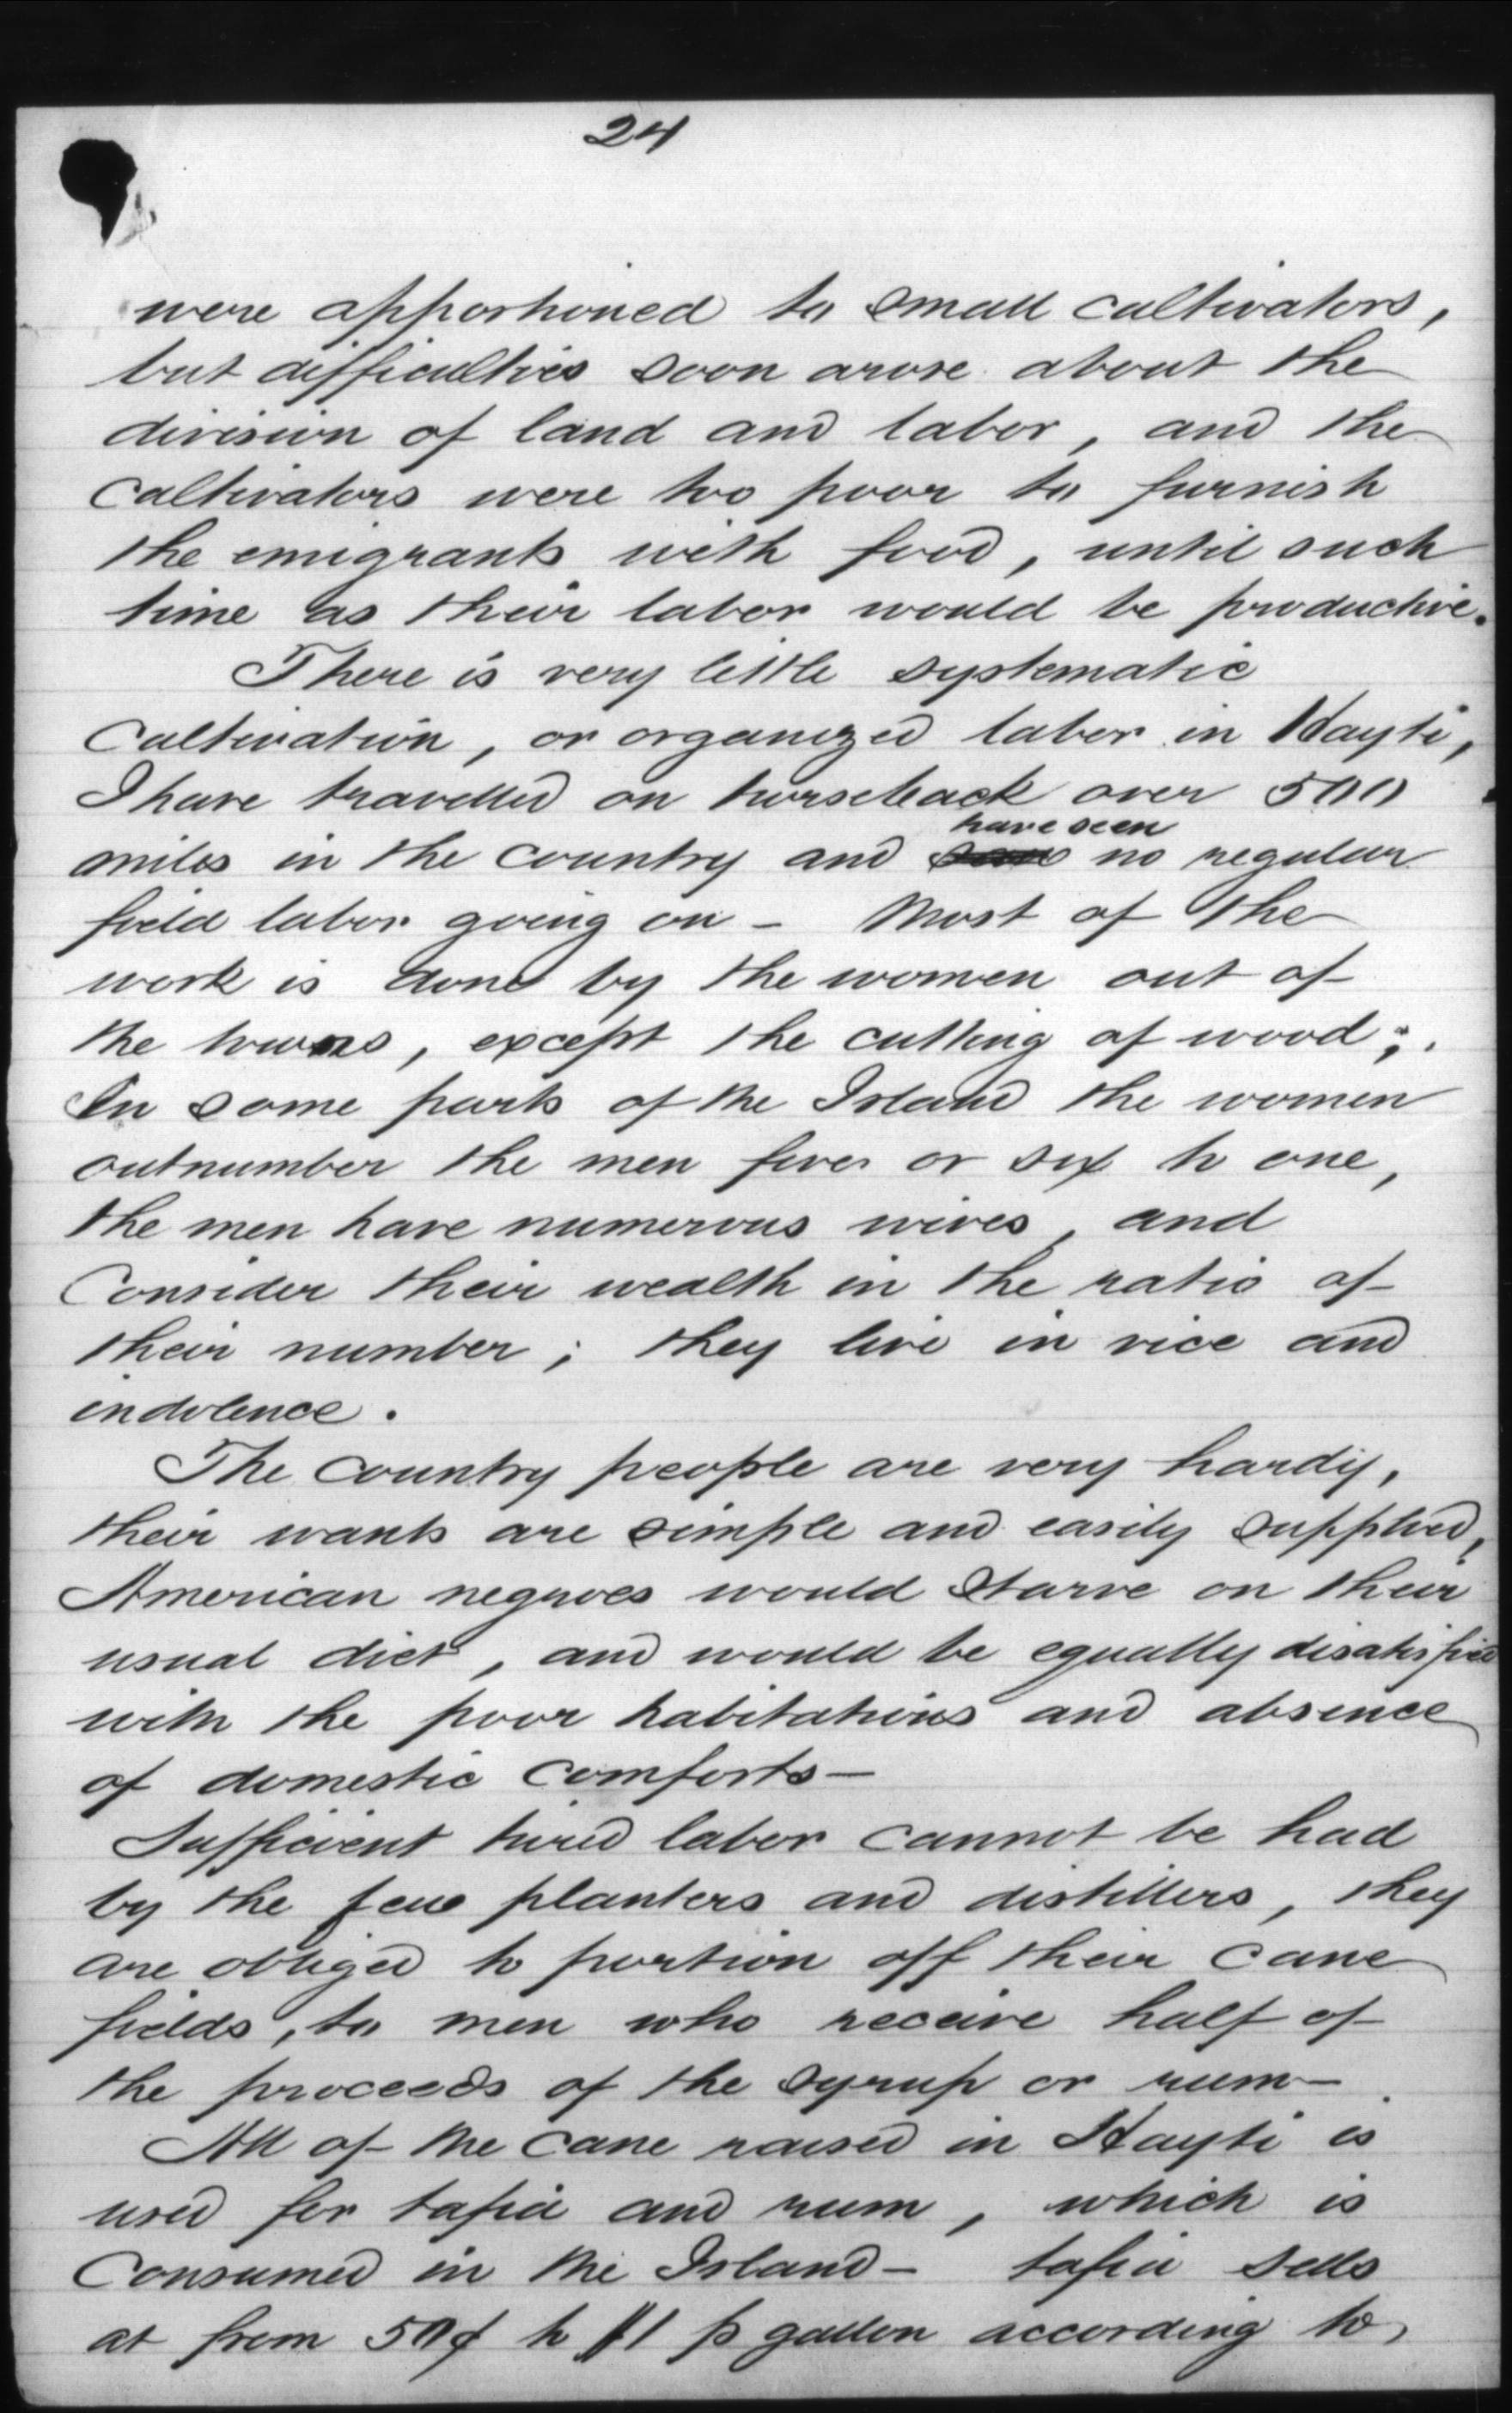 24
were apportioned to small cultivators,
but difficulties soon arose about the
division of land and labor, and the
cultivators were too poor to furnish
the emigrants with food, until such
time as their labor would be productive.
There is very little systematic
cultivation, or organized labor in Hayti,
I have travelled on horseback over 500
have seen
miles in the country and saw no regular
field labor going on - Most of the
work is done by the women out of
the towns, except the cutting of wood;.
In some parts of the Island the women
outnumber the men five or six to one,
the men have numerous wives, and
Consider their wealth in the ratio of
their number; they live in vice and
indolence.
The country people are very hardy,
their wants are simple and easily supplied,
American negroes would starve on their
usual diet, and would be equally disatisfied
with the poor habitations and absence
of domestic comforts—
Sufficient hired labor cannot be had
by the few planters and distillers, they
are obliged to portion off their cane
fields, to men who receive half of
the proceeds of the syrup or rum—
All of the cane raised in Hayti is
used for tafia and rum, which is
Consumed in the Island— tafia sells
at from 50¢ to $1 p gallon according to,